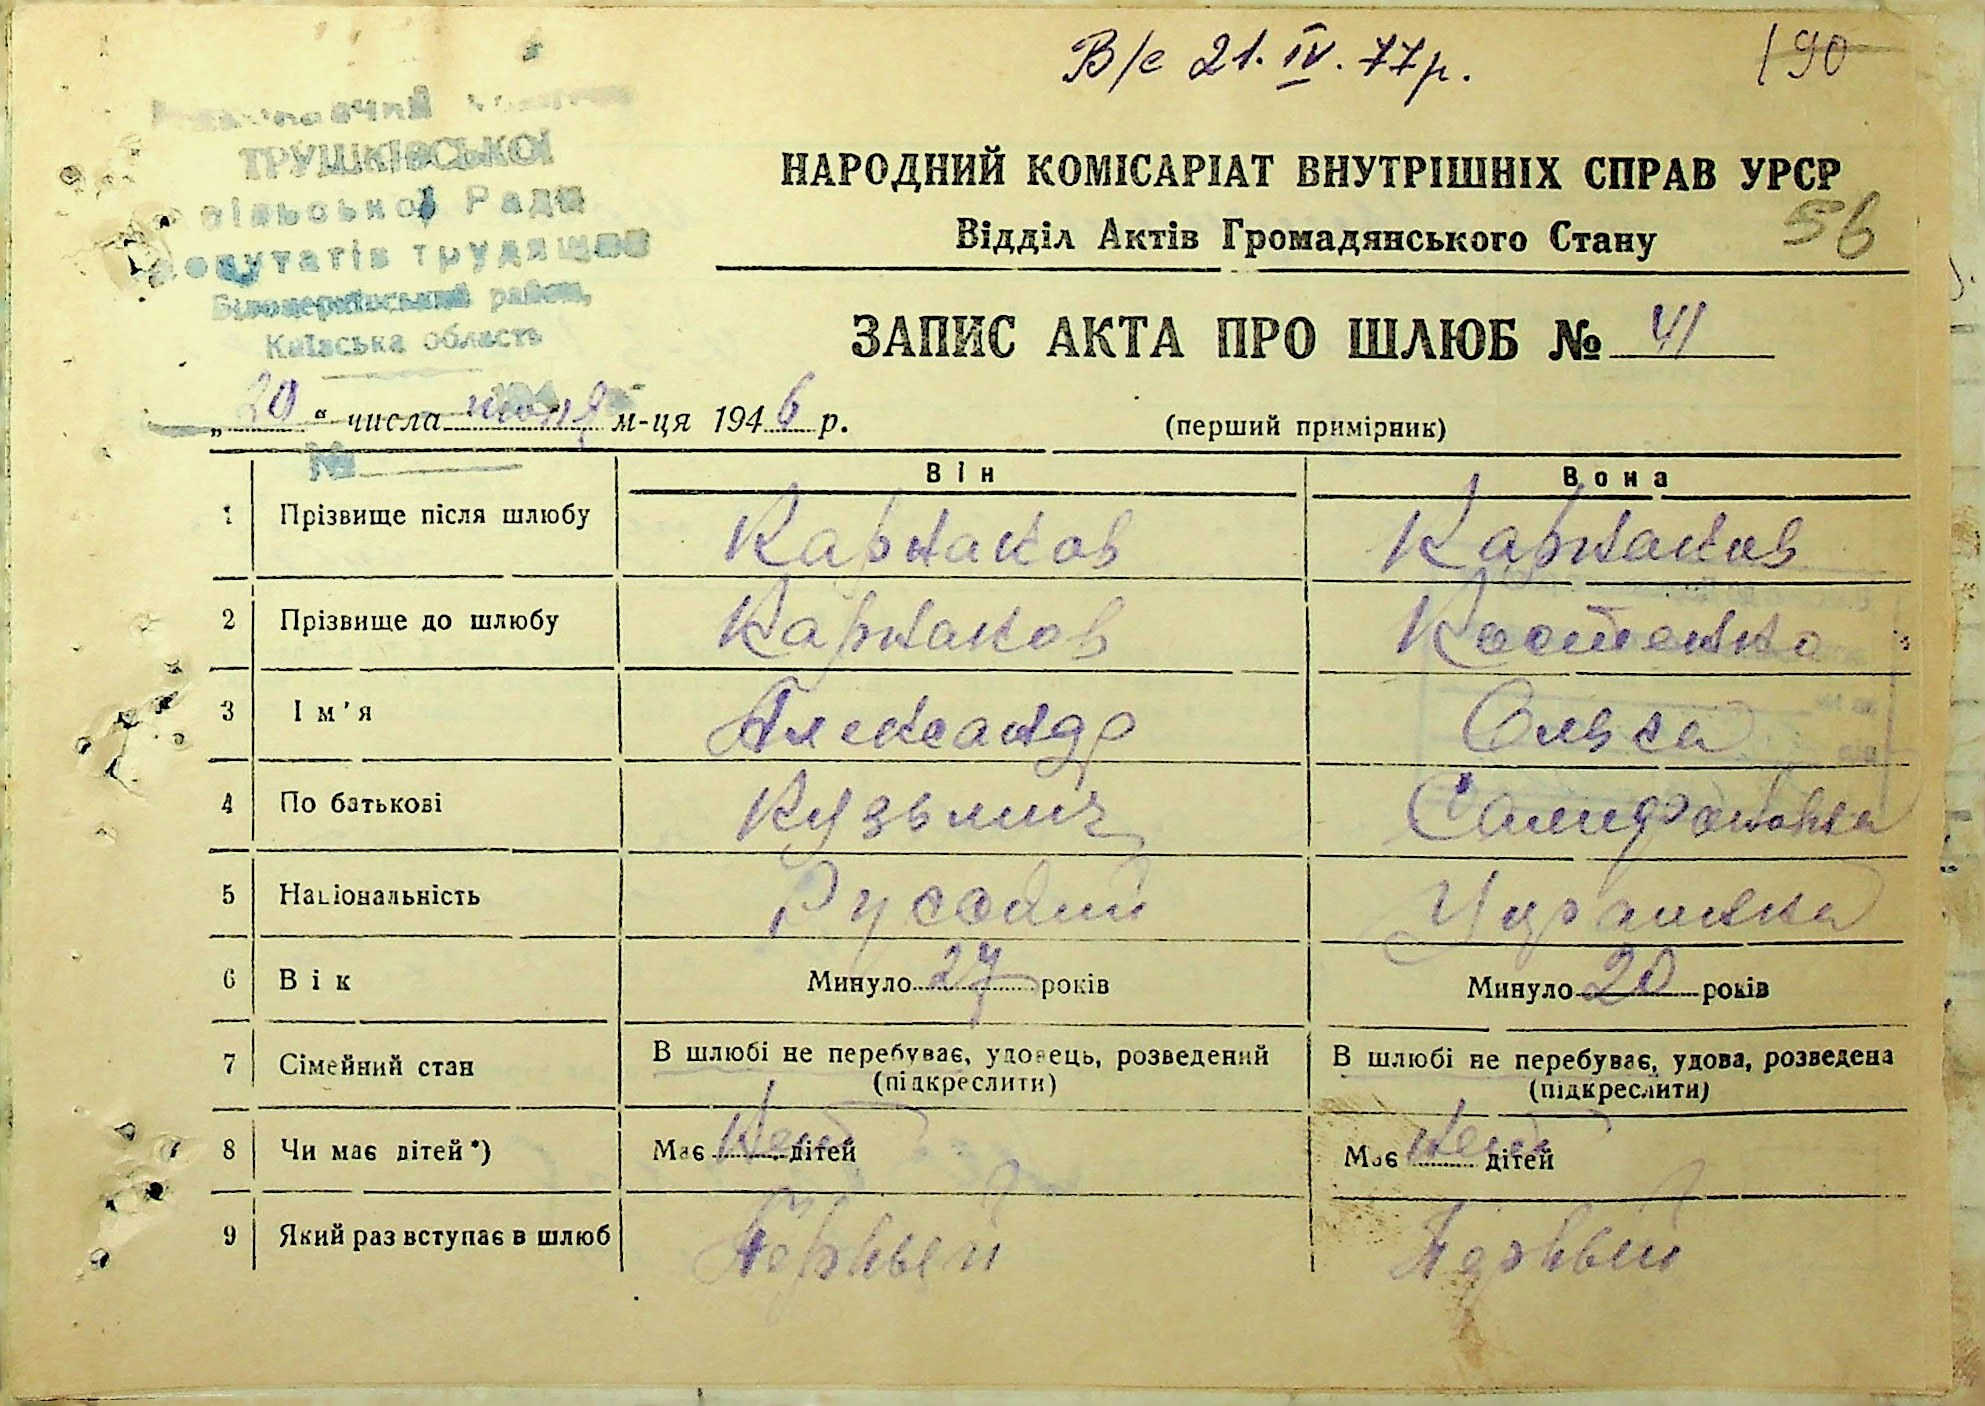 В/с 21.IV.77р.
190
ТРУШКІВСЬКОЇ
сільської Ради
депутатів трудящих
Білоцерківський район,
Київська область
НАРОДНИЙ КОМІСАРІАТ ВНУТРІШНІХ СПРАВ УРСР
Відділ Актів Громадянського Стану
56
ЗАПИС АКТА ПРО ШЛЮБ № 41
„20“ числа июня м-ця 1946 р.
(перший примірник)
№
Він
Вона
1 Прізвище після шлюбу Карнаков Карнаков
2 Прізвище до шлюбу Карнаков Костенко
3 Ім'я Александр Ольга
4 По батькові Кузьмич
5 Національність Русский Украинка
6 Вік Минуло 27 років Минуло 20 років
7 Сімейний стан В шлюбі не перебуває, удовець, розведений (підкреслити) В шлюбі не перебуває, удова, розведена (підкреслити)
8 Чи має дітей*) Має нет дітей Має нет дітей
9 Який раз вступає в шлюб Первый Первый